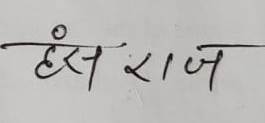 हंस राज